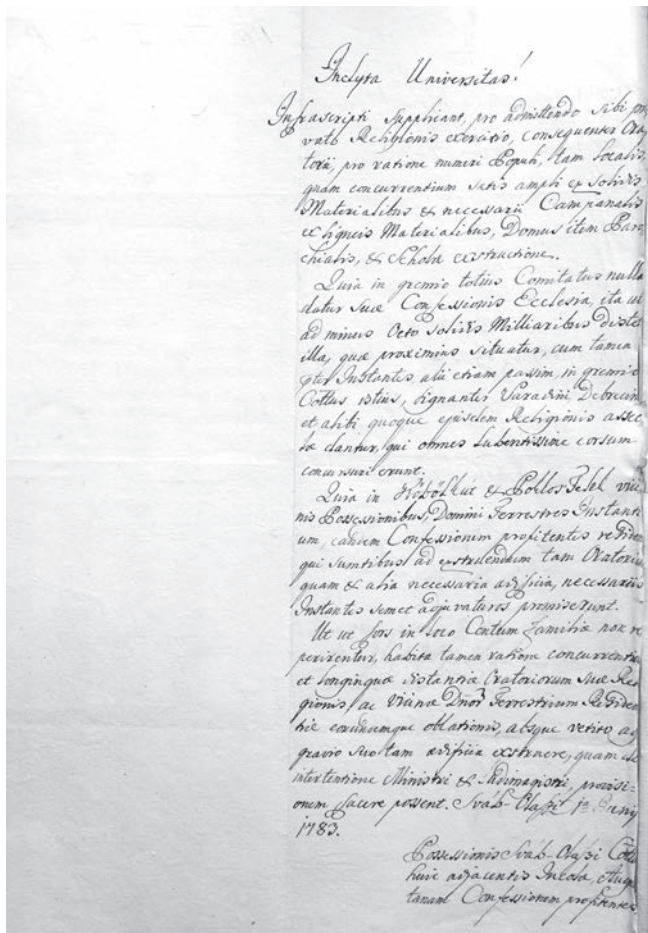 Inclyta Universitas!
Infrascripti Supplicant, pro admittendo sibi pri
vato Religionis exercitio, consequenter Ora
torii, pro ratione numeri Populi, tam localis,
quam concurrentium satis ampli ex solidis
Materialibus & necessarii Campanalis
ex ligneis Materialibus, Domus item Paro
chialis, & Scholæ exstructione.
Quia in gremio totius Comitatus nulla
datur suæ Confessionis Ecclesia, ita ut
ad minus Octo solidis Milliaribus distet
illa, quæ proximius situatur, cum tamen
Instantes, alii etiam passim, in gremio
Cottus istius, signanter Varadini, Debrecini
et alibi quoque ejusdem Religionis assec
læ dantur, qui omnes lubentissime eorsum
concursuri erunt.
Quia in & Telek vici
nis Possessionibus, Domini Terrestres Instanti
um, eandem Confessionem profitentes resident
qui sumtibus ad exstruendum tam Oratorium
quam & alia necessaria ædificia, necessariis
Instantes semet adjuvaturos promiserunt.
Ut ut fors in loco Centum Familiæ non re
perirentur, habita tamen ratione concurrentium
et longinquæ distantiæ Oratoriorum suæ Reli
gionis ac vicinæ Dnor Terrestrium Residen
tiæ eorundemque oblationis, absque vetito ag
gravio suo tam ædificia exstruere, quam de
intertentione Ministri & Ludimagistri, provisi=
onem facere possent. Sváb-Olaszi 1a Juny
1783.
Possessionis Sváb-Olaszi Cottui
huic adjacentis Incolæ, Augus
tanam Confessionem profitentes